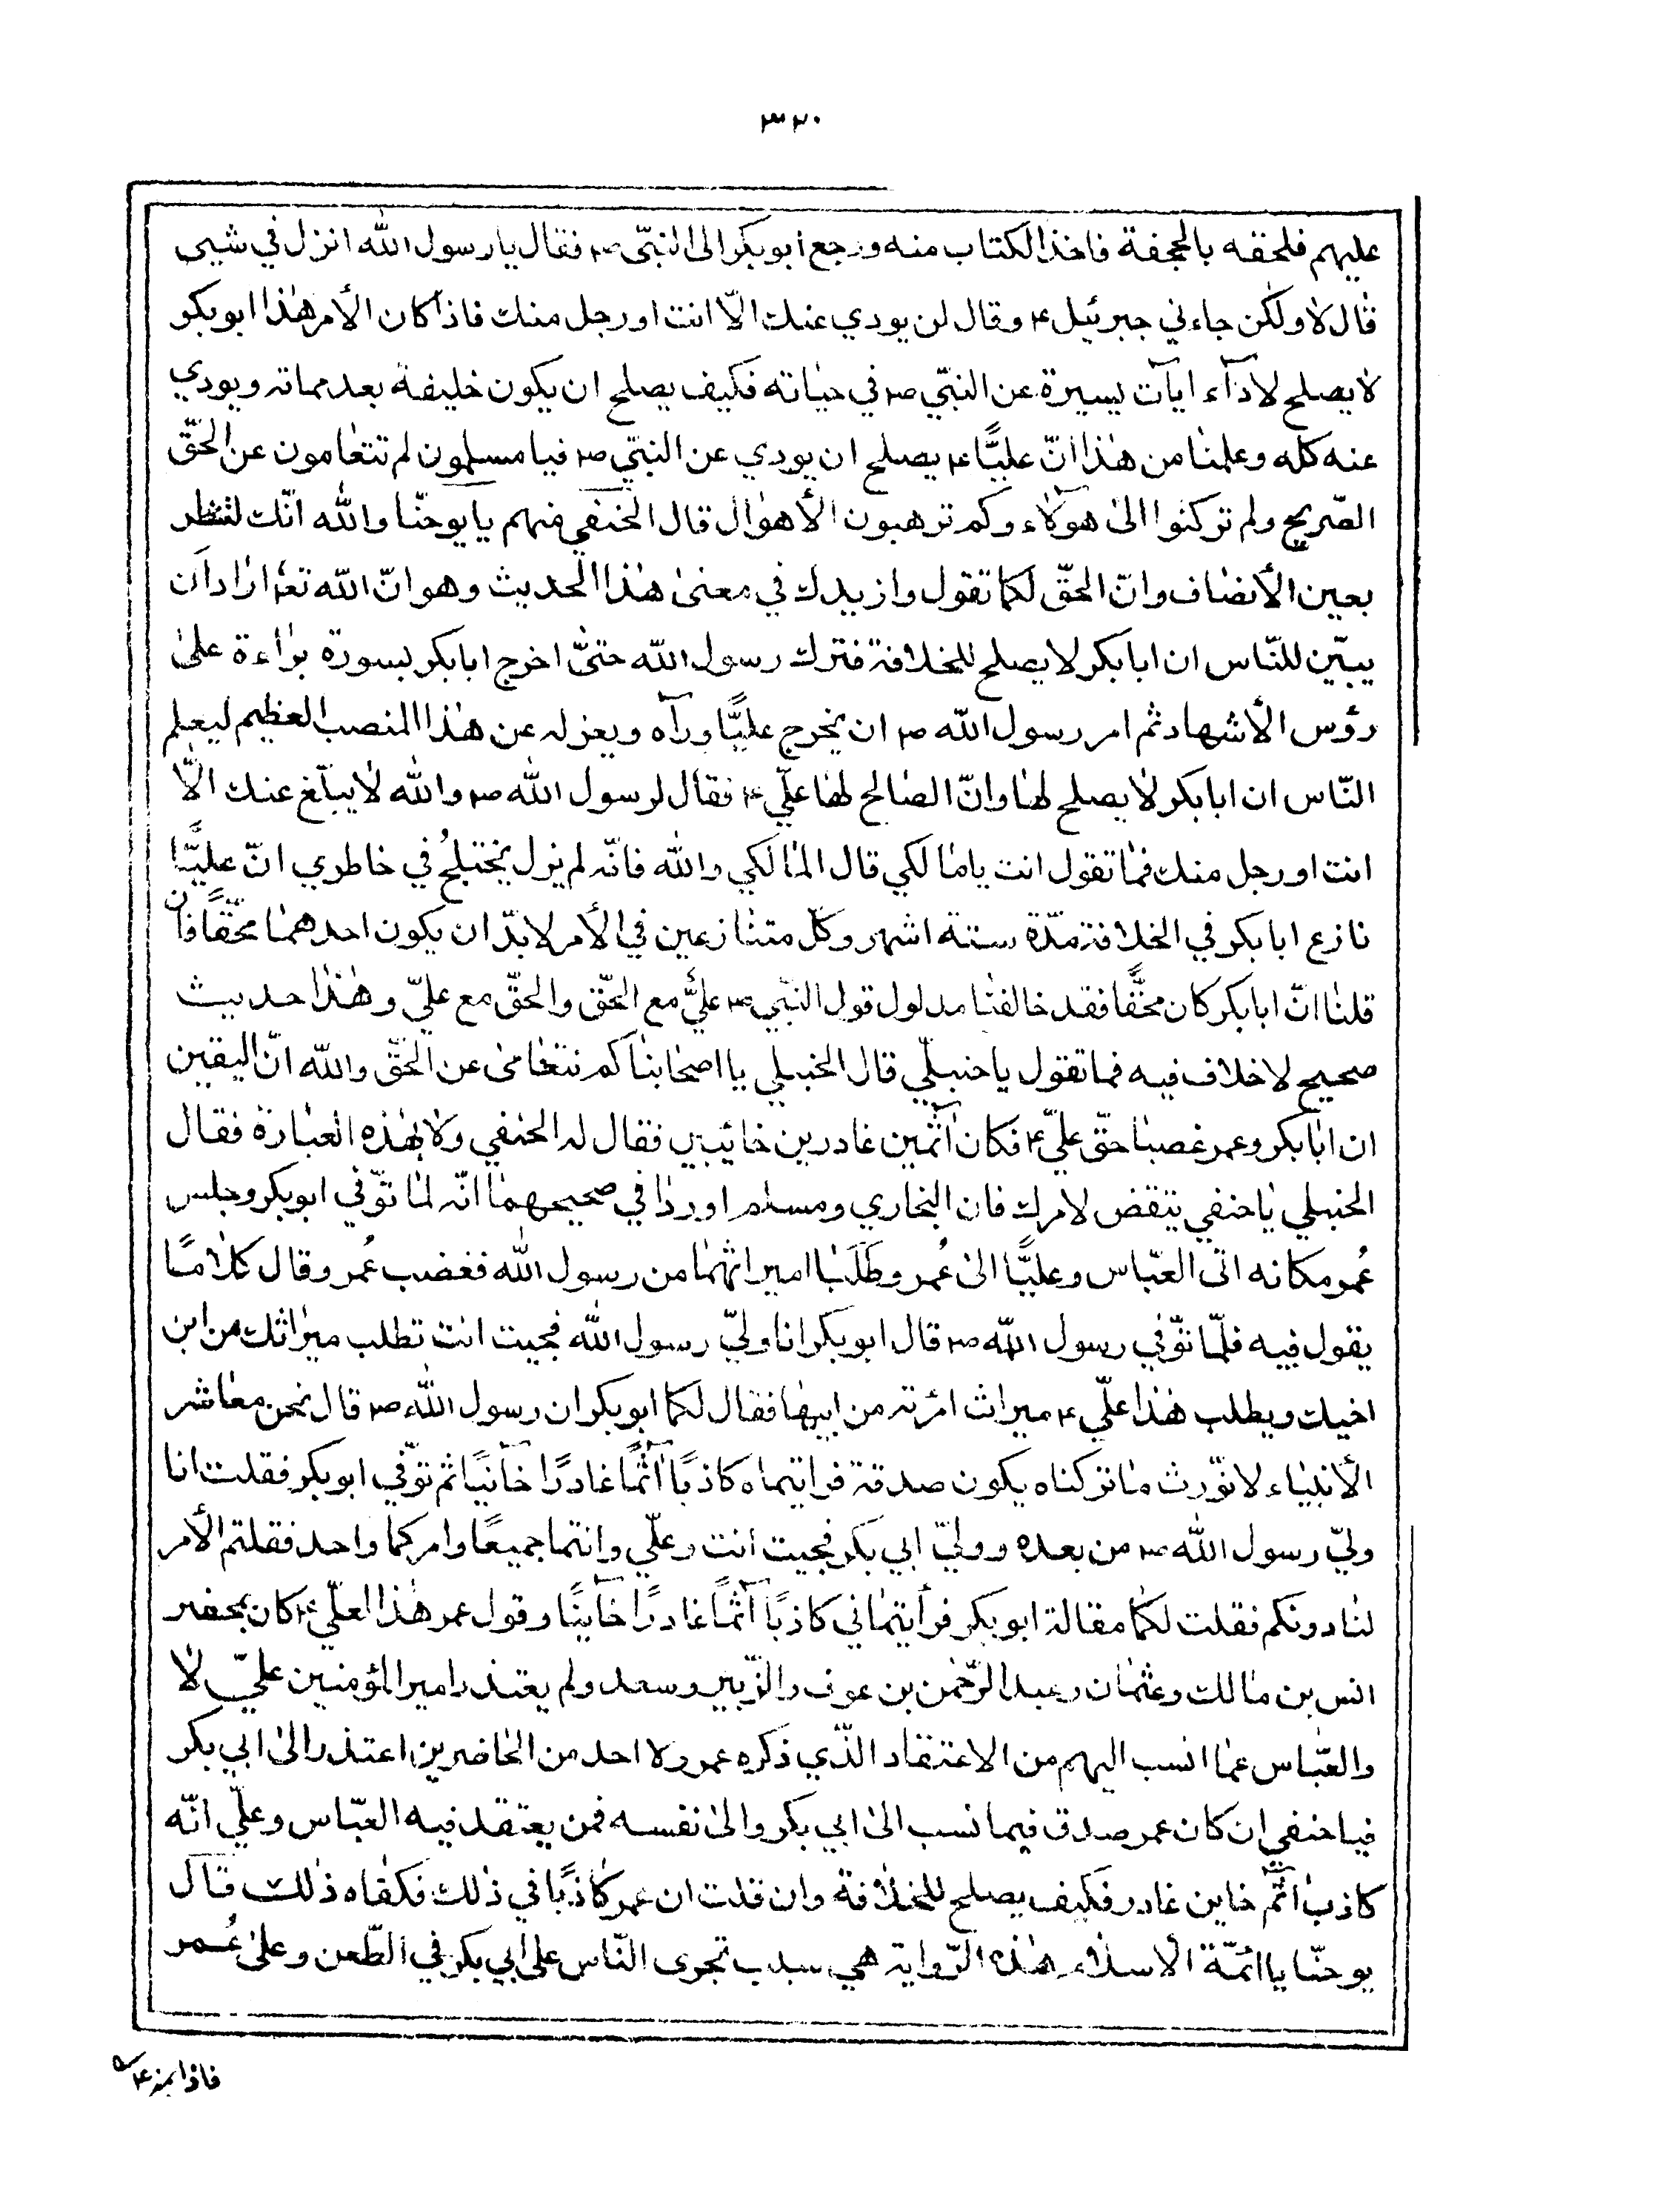 ٣٢٠
عليهم فلحقه بالجحفة فاخذ الكتاب منه ورجع ابوبكر الى النبّي ص فقال يا رسول الله انزل في شيى
قال لا ولكن جاءني جبرئيل ع وقال لن يودي عنك الّا انت او رجل منك فاذا كان الأمر هذا ابوبكر
لا يصلح لادآء ايآت يسيرة عن النبّي ص في حياته فكيف يصلح ان يكون خليفة بعد مماته ويودي
عنه كله وعلمنا من هذا انّ عليًّا ع يصلح ان يودي عن النبّي ص فيا مسلمون لم تتعامون عن الحقّ
الصّريح ولم تركنوا الى هوءلآء وكم ترهبون الأهوال قال الحنفي منهم يا يوحنّا والله انّك لتنظر
بعين الأنصاف وانّ الحقّ لكما تقول وازيدك في معنى هذا الحديث وهو انّ الله تعه اراد ان
يبيّن للنّاس ان ابا بكر لا يصلح للخلافة فترك رسول الله حتىّ اخرج ابا بكر بسورة براءة على
رؤس الأشهاد ثم امر رسول الله ص ان يخرج عليًّا ورآه ويعزله عن هذا المنصب العظيم ليعلم
النّاس ان ابا بكر لا يصلح لها وانّ الصالح لها عليّ ع فقال لرسول الله ص والله لا يبلّغ عنك الّا
انت او رجل منك فما تقول انت يا مالكي قال المالكي والله فانّه لم يزل يختلج في خاطري انّ عليًّا
نازع ابا بكر في الخلافة مدّة ستة اشهر وكلّ متنازعين في الأمر لابدّ ان يكون احدهما محقًّا فان
قلنا انّ ابا بكر كان محقًّا فقد خالفنا مدلول قول النبّي ص عليٌّ مع الحقّ والحقّ مع عليّ وهذا حديث
صحيح لا خلاف فيه فما تقول يا حنبلّي قال الحنبلي يا اصحابنا كم نتعامى عن الحقّ والله انّ اليقين
ان ابا بكر وعمر غصبا حقّ عليّ ع فكان آثمين غادرين خائبين فقال له الحنفي ولا بهذه العبارة فقال
الحنبلي يا حنفي تيقض لامرك فان البخاري ومسلم اوردا في صحيحهما انّه لما توّفي ابوبكر وجلس
عُمر مكانه اتى العبّاس وعليًّا الى عُمر وطَلَبَا اميراثهما من رسول الله فغضب عُمر وقال كلامًا
يقول فيه فلمّا توّفي رسول الله ص قال ابوبكر انا وليّ رسول الله فجيت انت تطلب ميراثك من ابن
اخيك ويطلب هذا عليّ ع ميراث امرئته من ابيها فقال لكما ابوبكر ان رسول الله ص قال نحن معاشر
الأنبياء لا نوّرث ما تركناه يكون صدقة فرايتماه كاذبًا آثمًا غادرًا خآنيًا ثم توّفي ابوبكر فقلت انا
وليّ رسول الله ص من بعده ووليّ ابي بكر فجيت انت وعلّي وانتما جميعًا وامركما واحد فقلتم الأمر
لنا دونكم فقلت لكما مقالة ابوبكر فرأيتماني كاذبًا آثمًا غادرًا خآينًا وقول عمر هذا العلّي ع كان بمحضر
انس بن مالك وعثمان وعبد الرّحمن بن عوف والزّبير وسعد ولم يعتذر امير المؤمنين عليّ لا
والعبّاس عما انسب اليهم من الاعتقاد الذّي ذكره عمر ولا احد من الحاضرين اعتذر الى ابي بكر
فيا حنفي ان كان عمر صدق فيما نسب الى ابي بكر والى نفسه فمن يعتقد فيه العبّاس وعلّي انّه
كاذب اثم خاين غادر فكيف يصلح للخلافة وان قلت ان عمر كاذبًا في ذلك فكفاه ذلك قال
يوحنّا يا ائمّة الاسلام هذه الرّواية هي سبب تجرى النّاس على ابي بكر في الطّعن وعلى عُمر